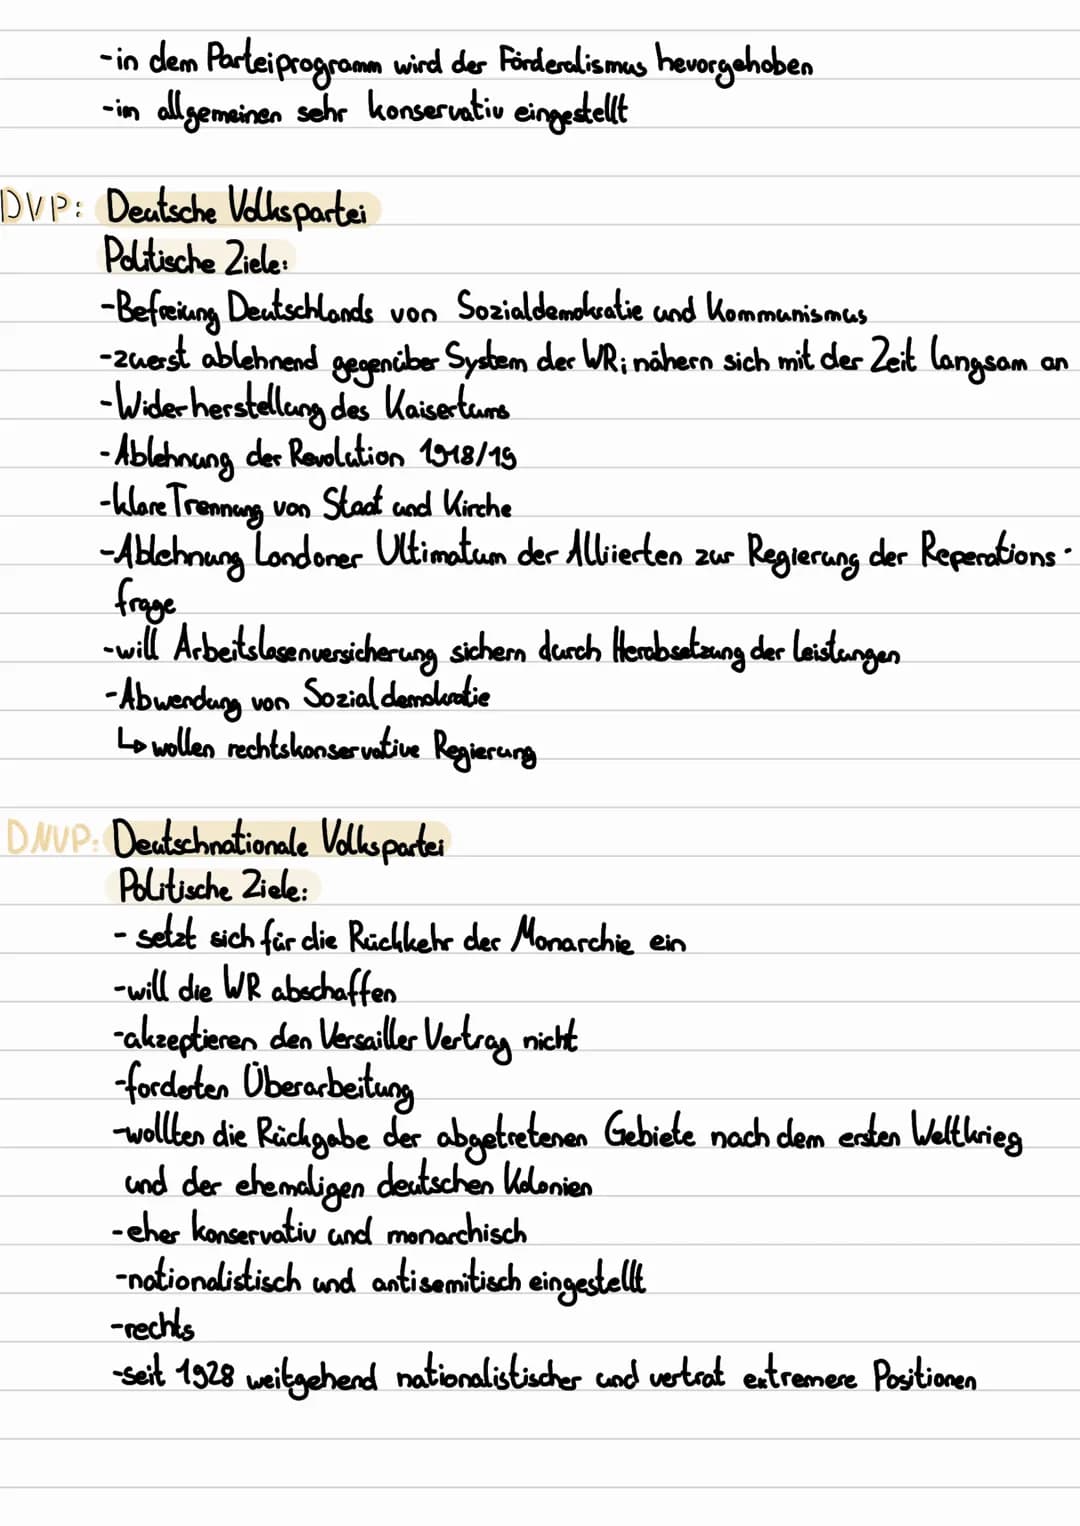 -in dem Parteiprogramm wird der Förderalismus hevorgehoben
-im allgemeinen sehr konservativ eingestellt
DVP: Deutsche Volkspartei
Politische Ziele:
-Befreiung Deutschlands von Sozialdemokratie und Kommunismus
-zuerst ablehnend gegenüber System der WR; nähern sich mit der Zeit langsam an
-Widerherstellung des Kaisertums
-Ablehnung der Revolution 1918/19
-klare Trennung von Staat und Kirche
-Ablehnung Londoner Ultimatum der Alliierten zur Regierung der Reperations-
frage
-will Arbeitslosenversicherung sichern durch Herabsetzung der Leistungen
-Abwendung von Sozialdemokratie
↳ wollen rechtskonservative Regierung
DNVP: Deutschnationale Volkspartei
Politische Ziele:
- setzt sich für die Rückkehr der Monarchie ein
-will die WR abschaffen
-akzeptieren den Versailler Vertrag nicht
-forderten Überarbeitung
-wollten die Rückgabe der abgetretenen Gebiete nach dem ersten Weltkrieg
und der ehemaligen deutschen Kolonien
-eher konservativ und monarchisch
-nationalistisch und antisemitisch eingestellt
-rechts
-seit 1928 weitgehend nationalistischer und vertrat extremere Positionen